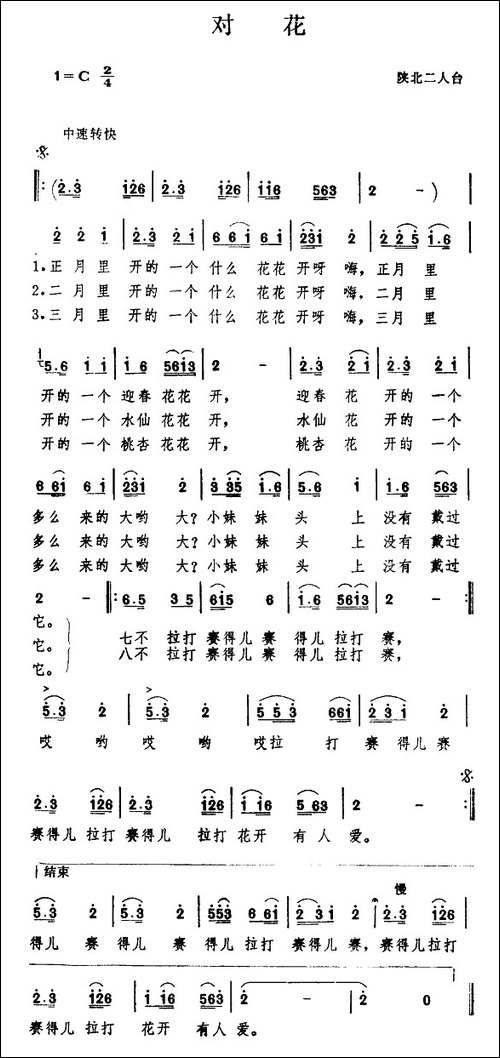 对 花
1=C 2/4
陕北二人台
中速转快
(2.3 126 2.3 126 116 563 2 -)
2 2 1 2.3 2 1 6 6 1 5 6 1 231 2 2 2 5 1.6
1.正 月 里 开的 一个 什么 花花 开呀 嗨,正月 里
2.二 月 里 开的 一个 什么 花花 开呀 嗨,二月 里
3.三 月 里 开的 一个 什么 花花 开呀 嗨,三月 里
5.6 1 1 1 6 5613 2 - 2.3 2 1 2.3 2 1
开的 一个 迎春 花花 开, 迎春 花 开的 一个
开的 一个 水仙 花花 开, 水仙 花 开的 一个
开的 一个 桃杏 花花 开, 桃杏 花 开的 一个
6 61 6 1 231 2 3 35 1.6 5.6 1 1.6 563
多么 来的 大哟 大?小妹 妹 头 上 没有 戴过
多么 来的 大哟 大?小妹 妹 头 上 没有 戴过
多么 来的 大哟 大?小妹 妹 头 上 没有 戴过
2 - 6.5 3 5 615 6 1.6 5613 2 -
它。
它。 七不 拉打 赛得儿 赛 得儿 拉打 赛,
它。 八不 拉打 赛得儿 赛 得儿 拉打 赛,
5.3 2 5.3 2 5 5 3 661 2 3 1 2
哎 哟 哎 哟 哎拉 打 赛 得儿 赛
2.3 126 2.3 126 2.3 126 1 16 5 63 2 -
赛得儿 拉打 赛得儿 拉打 花开 有人 爱。
结束
慢
5.3 2 5.3 2 553 6 61 2 3 1 2 2.3 126
得儿 赛 得儿 赛 得儿 拉打 赛得儿 赛,赛得儿拉打
2.3 126 1 16 563 2 - 2 0
赛得儿 拉打 花开 有人 爱。